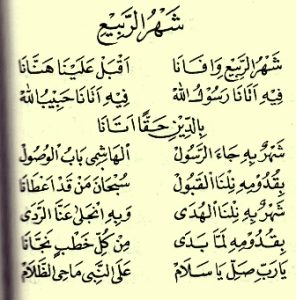 شَهْرُ الرَّبِيْعِ
شَهْرُ الرَّبِيْعِ وَافَانَا اَقْبَلْ عَلَيْنَا هَنَّانَا
فِيْهِ اَتَانَا رَسُوْلُ اللهْ فِيْهِ اَتَانَا حَبِيْبُ اللهْ
بِالدِّيْنِ حَقًّا اَتَانَا
شَهْرٌ بِهِ جَاءَ الرَّسُوْلْ اَلْهَاشِمِيْ بَابُ الْوُصُوْلْ
بِقُدُوْمِهِ نِلْنَا الْقَبُوْلْ سُبْحَانَ مَنْ قَدْ اَعْطَانَا
شَهْرٌ بِهِ نِلْنَا الْهُدَى وَبِهِ انْجَلَى عَنَّا الرَّدَى
بِقُدُوْمِهِ لَمَّا بَدَى مِنْ كُلِّ خَطْبٍ نَجَّانَا
يَارَبِّ صَلِّ يَا سَلَامْ عَلَى النَّبِيْ مَاحِى الظَّلَامْ